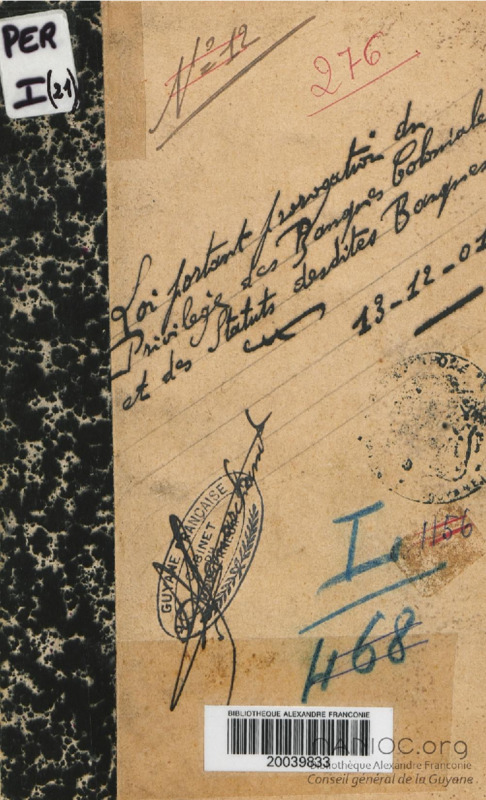 PER
I(21)
N° 12
276
Loi portant prorogation du
Privilège des Banques Coloniales
et des Statuts desdites Banques
13-12-01
GUYANE FRANÇAISE
CABINET
I.
1156
468
BIBLIOTHEQUE ALEXANDRE FRANCONIE
20039833
MANIOC.org
Bibliothèque Alexandre Franconie
Conseil général de la Guyane